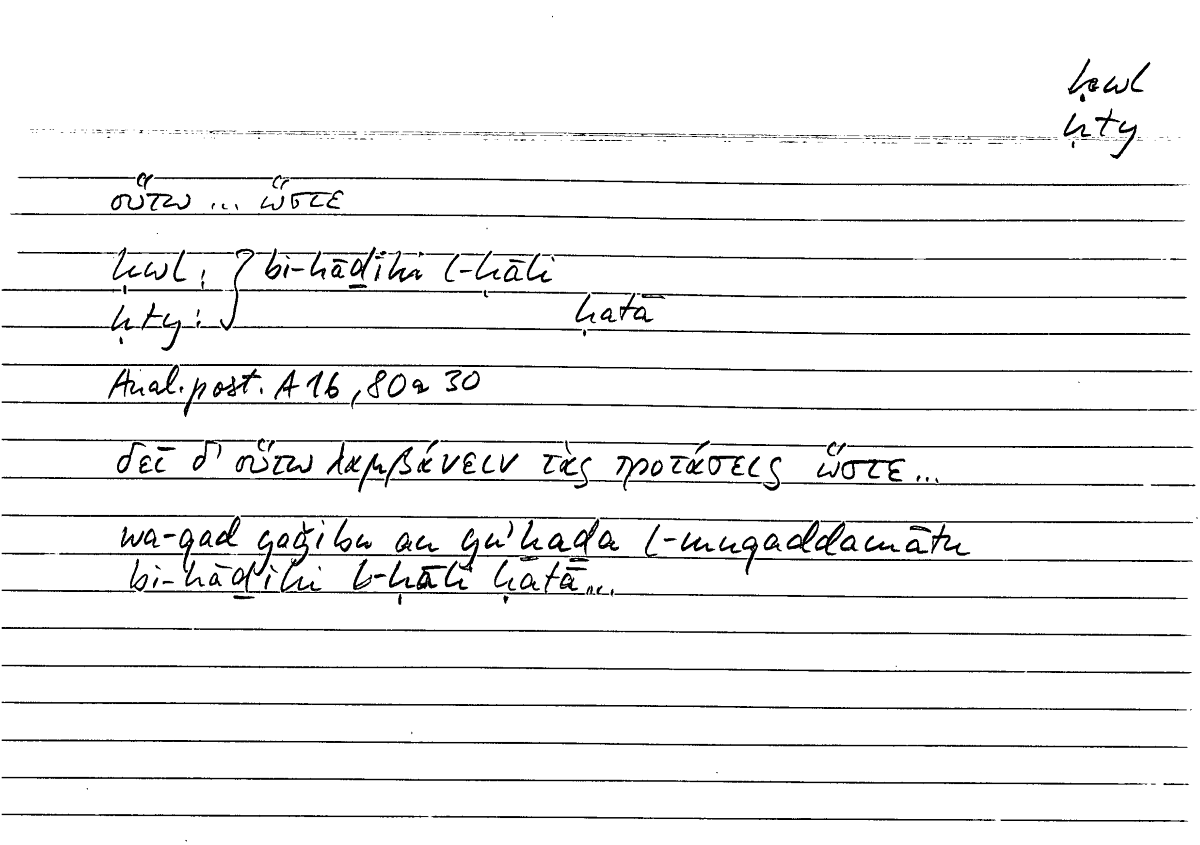 ḥwl
ḥty
οὕτω ... ὥστε
ḥwl : } bi-hāḏihi l-ḥāli
ḥty : } ḥatā
Anal. post. A 16, 80a 30
δεῖ δ' οὕτω λαμβάνειν τὰς προτάσεις ὥστε...
wa-qad yaǧibu an yu'ḫaḏa l-muqaddamātu
bi-hāḏihi l-ḥāli ḥatā...